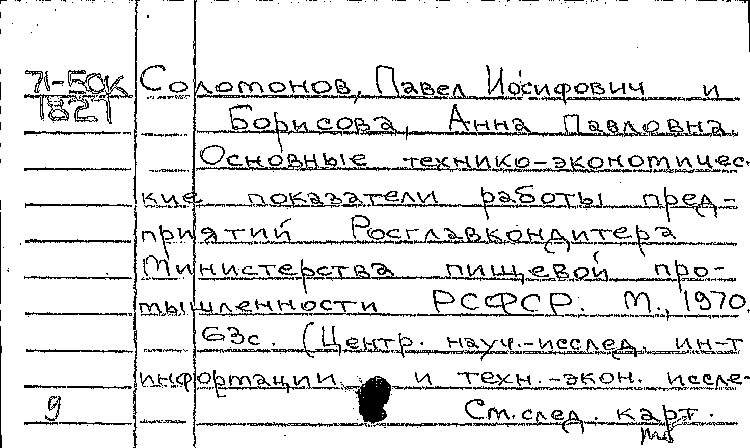 71-50к Соломонов, Павел Иосифович и
1821
Борисова, Анна Павловна
Основные технико-экономичес-
кие показатели работы пред-
приятий Росглавкондитера
Министерства пищевой про-
мышленности РСФСР. М., 1970.
63с. (Центр. науч.-исслед. ин-т
информации и техн.-экон. иссле-
9 См. след. карт.